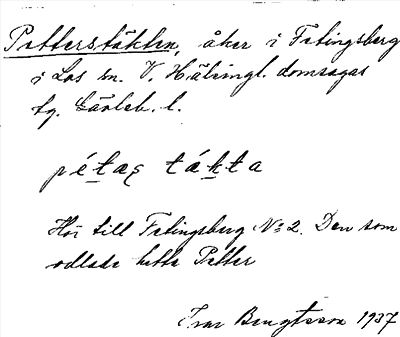 Petterstäkten, åker i Fetingsberg
i Los sn. V. Hälsingl. domsagas
tg. Gävleb. l.
pétaş tákta
Hör till Fetingsberg No 2. Den som
odlade hette Petter
Ivar Bengtsson 1937